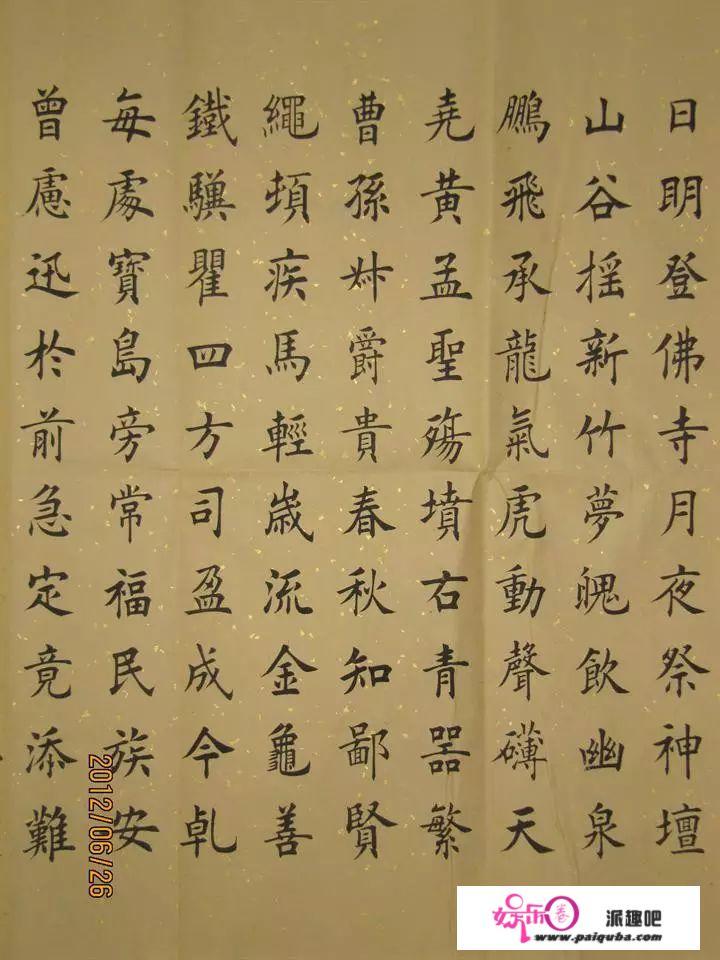 日明登佛寺月夜祭神壇
山谷摇新竹夢魄飲幽泉
鵬飛承龍氣虎動聲礴天
堯黃孟聖殤墳右青器繁
曹孫叔爵貴春秋知鄙賢
繩頓疾馬輕嵗流金龜善
鐵驥瞿四方司盈成今乹
每處寶島旁常福民族安
曾慮迅於前急定竟添難
2012/06/26
娱乐圈
派趣吧
www.paiquba.com